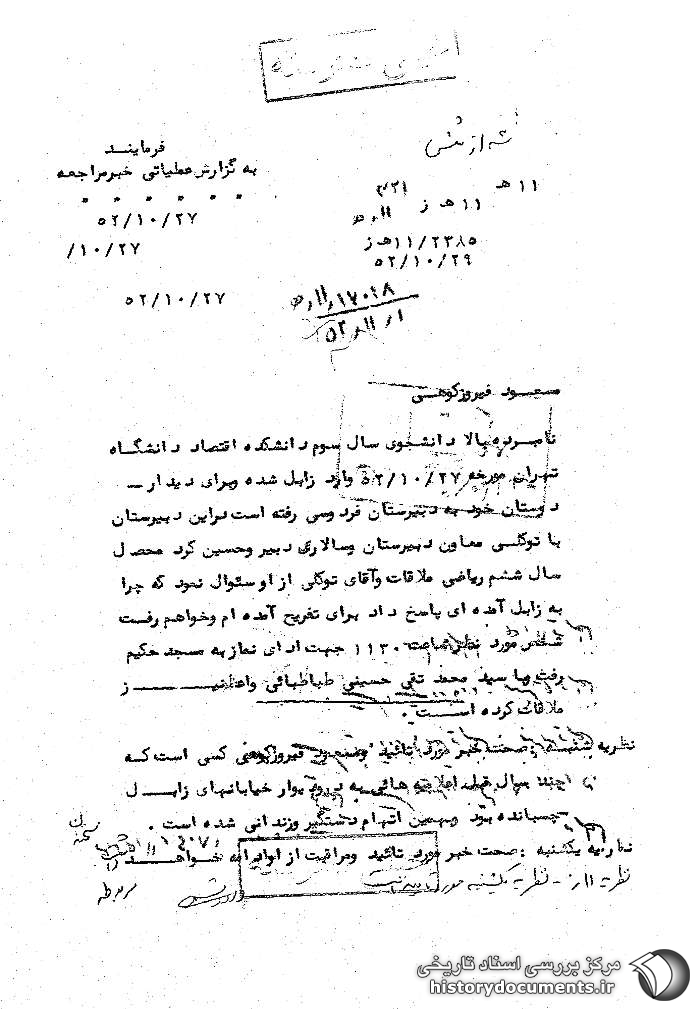 فرمایند
به گزارش عملیاتی خبر مراجعه
۵۲/۱۰/۲۷
/۱۰/۲۷
۵۲/۱۰/۲۷
۱۱ هـ
۱۱ هـ ز
۱۱/۲۳۸۵ هـ ز
۵۲/۱۰/۲۹
مسعود فیروزکوهی
نامبرده بالا دانشجوی سال سوم دانشکده اقتصاد دانشگاه
تهران مورخه ۵۲/۱۰/۲۷ وارد زابل شده وبرای دیدار
دوستان خود به دبیرستان فردوسی رفته است دراین دبیرستان
با توکلی معاون دبیرستان وسالاری دبیر وحسین کرد محصل
سال ششم ریاضی ملاقات وآقای توکلی از او سئوال نمود که چرا
به زابل آمده ای پاسخ داد برای تفریح آمده ام وخواهم رفت
شخص مورد نظر ساعت ۱۱۳۰ جهت ادای نماز به مسجد حکیم
رفت وبا سید محمد تقی حسینی طباطبائی واعظ نیز
ملاقات کرده است .
نظریه شنبه : صحت خبر مورد تائید ومسعود فیروزکوهی کسی است که
چند سال قبل اعلامیه هائی به درو دیوار خیابانهای زابل
چسبانده بود وبهمین اتهام دستگیر وزندانی شده است .
نظریه یکشنبه : صحت خبر مورد تائید ومراقبت از او ادامه خواهد
نظریه ۱۱ هـ ز - نظریه یکشنبه مورد تائید است
مربوطه
مرکز بررسی اسناد تاریخی
historydocuments.ir